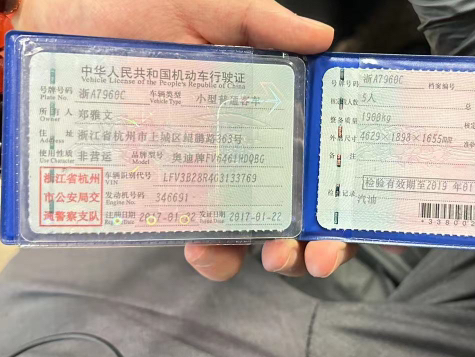 中华人民共和国机动车行驶证
Vehicle License of the People's Republic of China
号牌号码 浙A7960C 车辆类型 小型普通客车
Plate No. Vehicle Type
所有人 郑雅文
Owner
住址 浙江省杭州市上城区绍鹏路363号
Address
使用性质 非营运 品牌型号 奥迪牌FV6461HDQBG
Use Character Model
浙江省杭州
市公安局交
通警察支队
车辆识别代号 LFV3B28R4G3133769
VIN
发动机号码 346691
Engine No.
注册日期 2017-01-22 发证日期 2017-01-22
Issue Date
号牌号码 浙A7960C 档案编号
核定载人数 5人 总
整备质量 1900kg
外廓尺寸 4629×1898×1655mm
备注
检验有效期至2019年01
检验记录 汽油